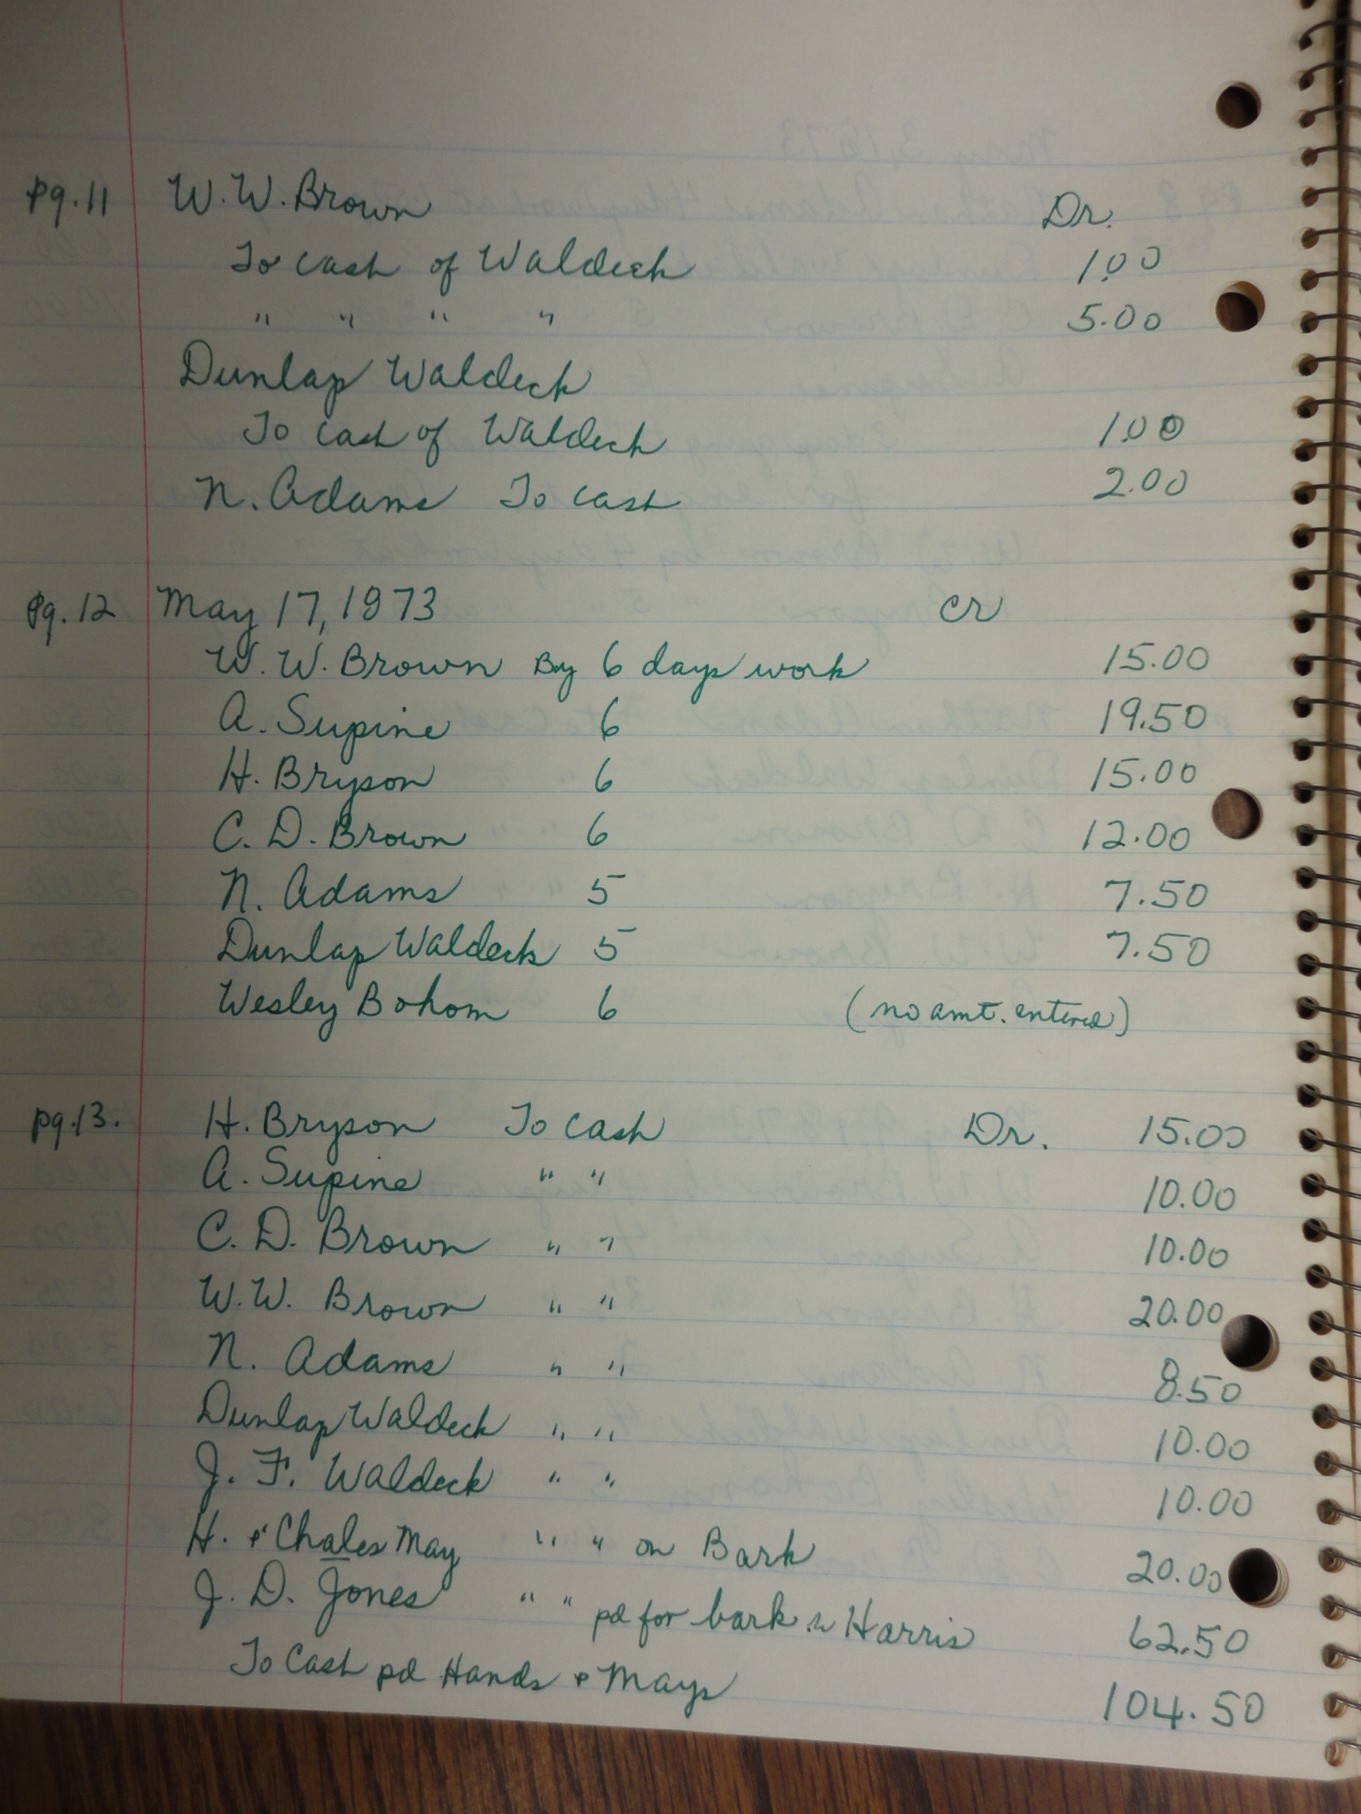 pg. 11 W. W. Brown Dr.
To cash of Waldeck 1.00
" " " " 5.00
Dunlap Waldeck
To cash of Waldeck 1.00
N. Adams To cash 2.00
pg. 12 May 17, 1873 Cr
W. W. Brown By 6 days work 15.00
A. Supine 6 19.50
H. Bryson 6 15.00
C. D. Brown 6 12.00
N. Adams 5 7.50
Dunlap Waldeck 5 7.50
Wesley Bohom 6 (no amt. entered)
pg. 13. H. Bryson To cash Dr. 15.00
A. Supine " " 10.00
C. D. Brown " " 10.00
W. W. Brown " " 20.00
N. Adams " " 8.50
Dunlap Waldeck " " 10.00
J. F. Waldeck " " 10.00
H. & Chales May " " on Bark 20.00
J. D. Jones " " pd for bark Harris 62.50
To Cash pd Hands & Mays 104.50